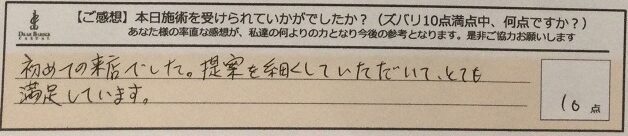 【ご感想】本日施術を受けられていかがでしたか？（ズバリ10点満点中、何点ですか？）
あなた様の率直な感想が、私達の何よりの力となり今後の参考となります。是非ご協力お願いします
初めての来店でした。提案を細くしていただいて、とても
満足しています。
10点